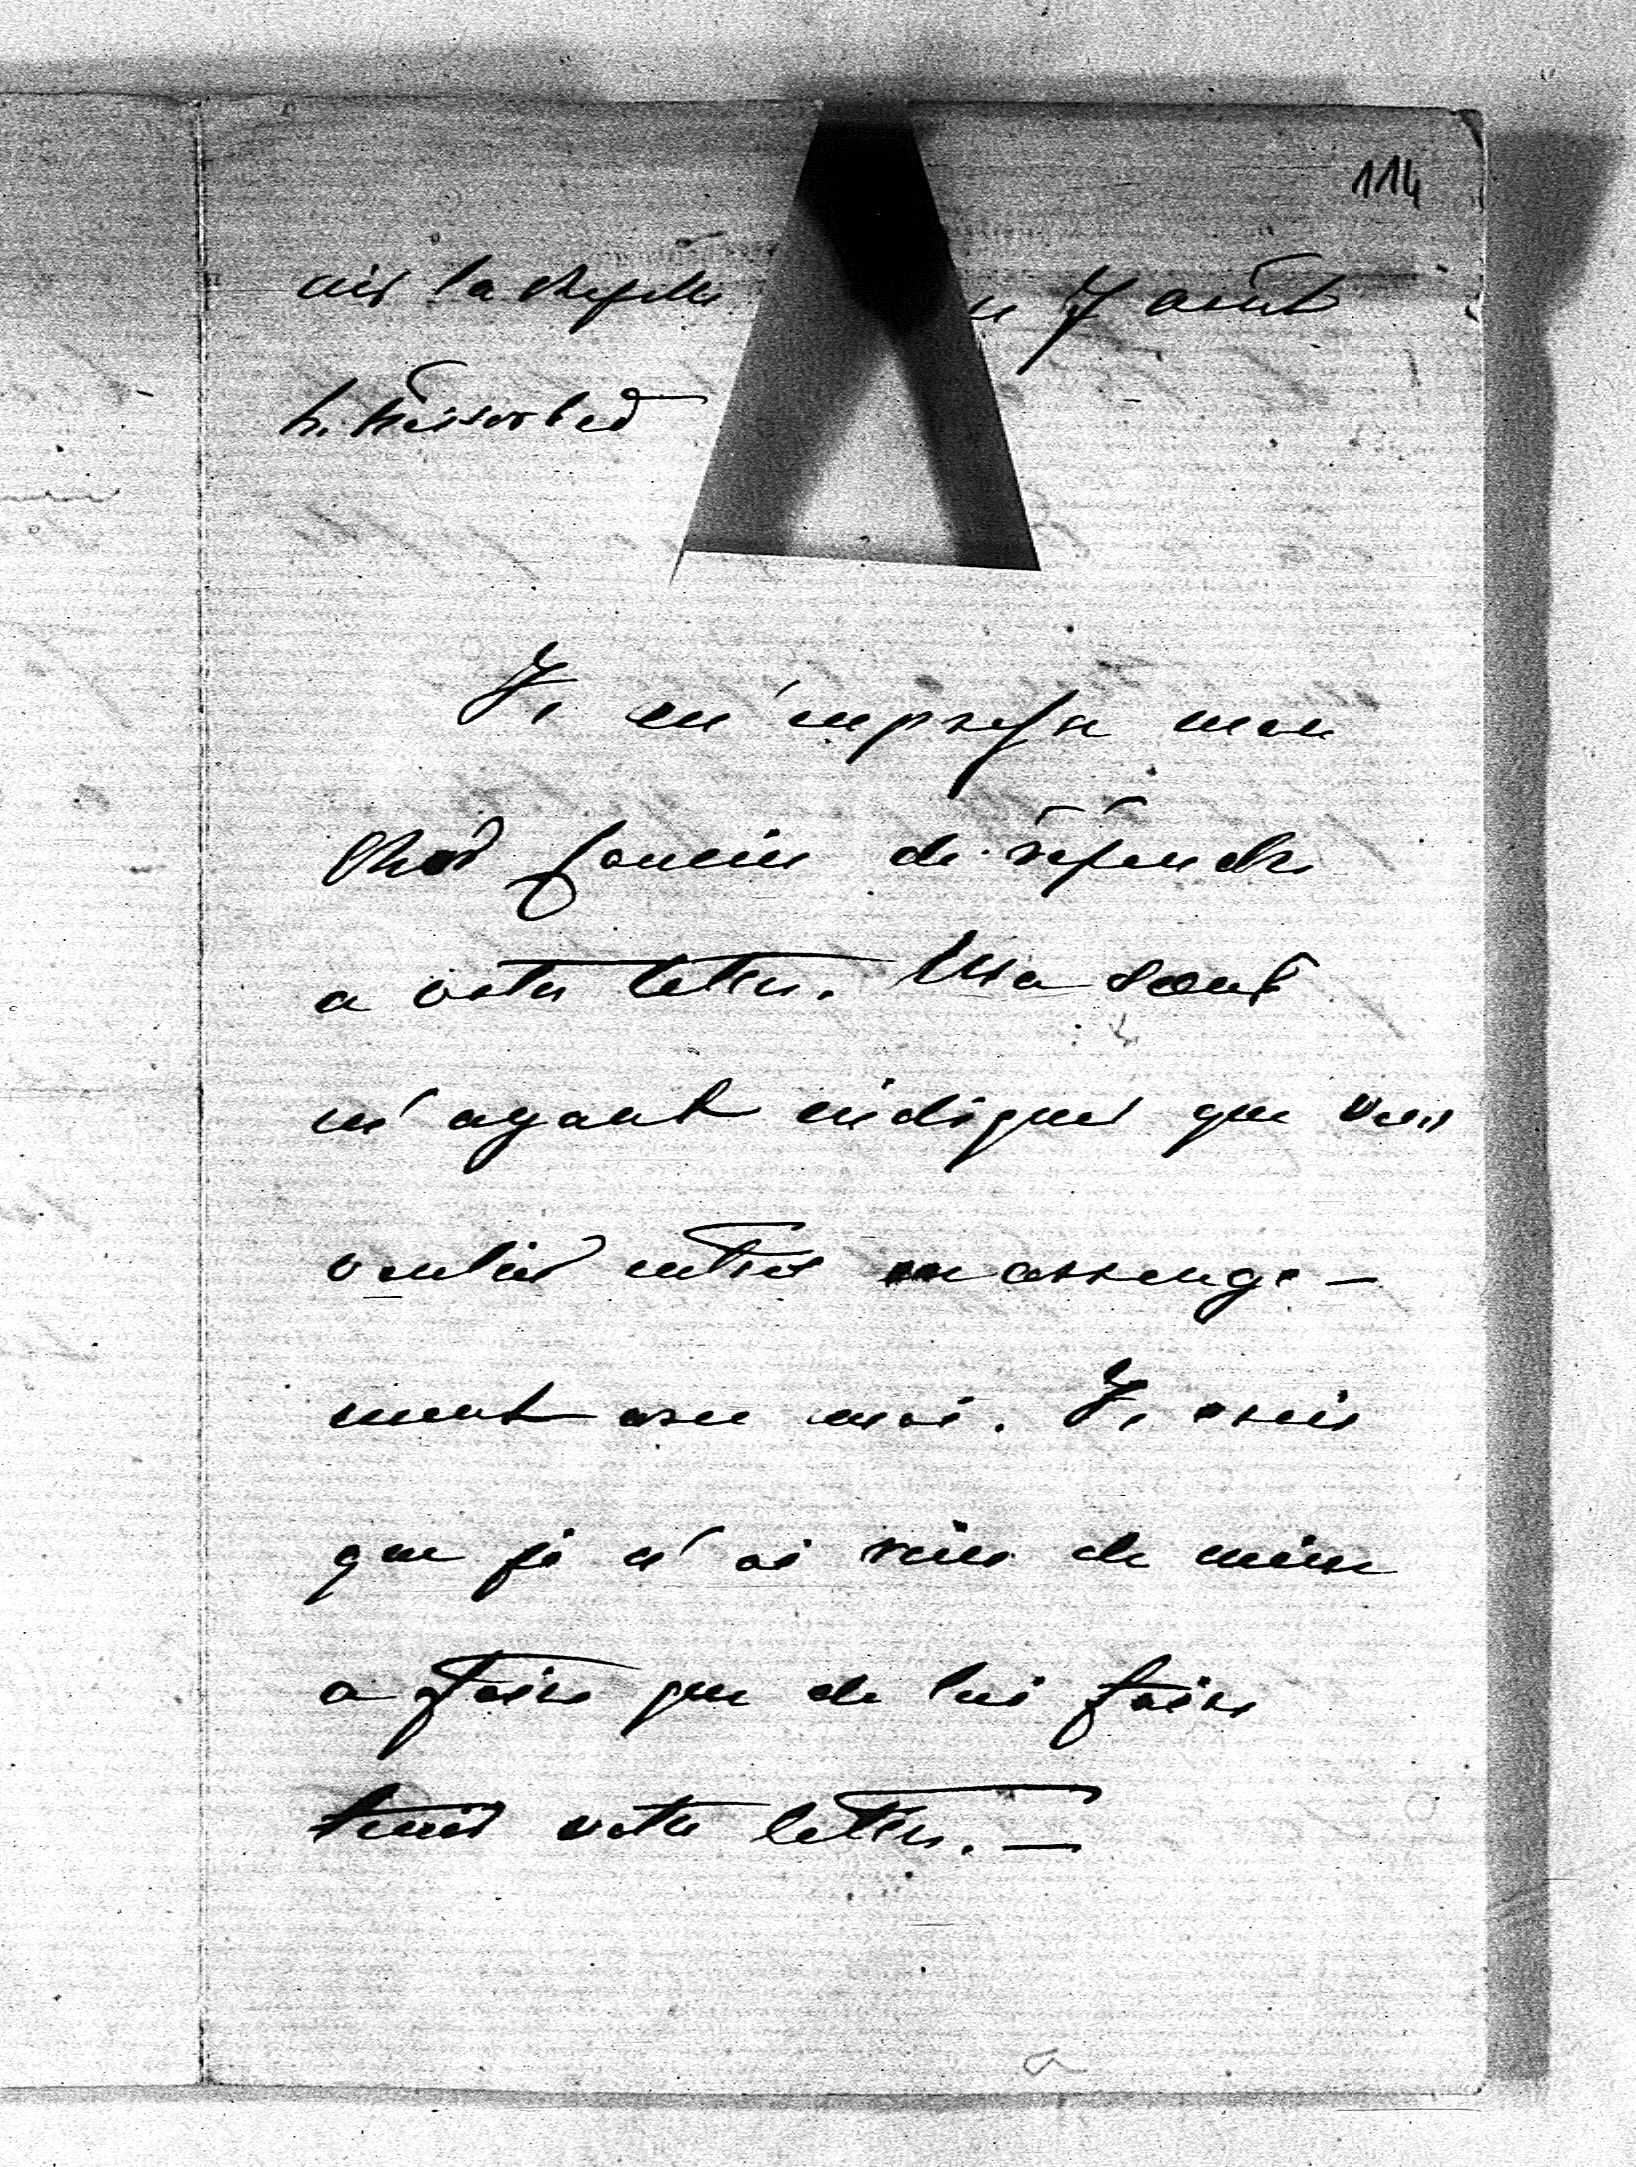 114
aix la Chapelle le 7 août
h. Kaiserbad
Je m'empresse mon
cher Cousin de répondre
a votre lettre. Ma sœur
m'ayant indiquer que vous
voulier entrer en arrenge-
ment avec moi. Je crois
que je n'ai rien de mieux
a faire que de lui faire
tenir votre lettre. —